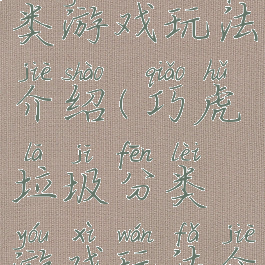 类游戏玩法
jiè shào qiǎo hǔ
介绍(巧虎
lā jī fēn lèi
垃圾分类
yóu xì wán fǎ jiè
游戏玩法介